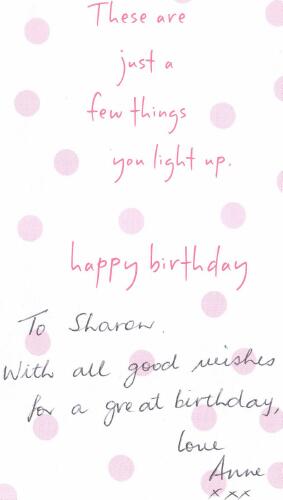 These are
just a
few things
you light up.
happy birthday
To Sharon.
With all good wishes
for a great birthday,
love
Anne
x xx